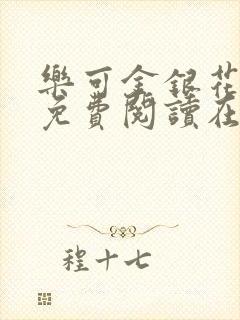 樂可金銀花
免費閱讀在
程十七